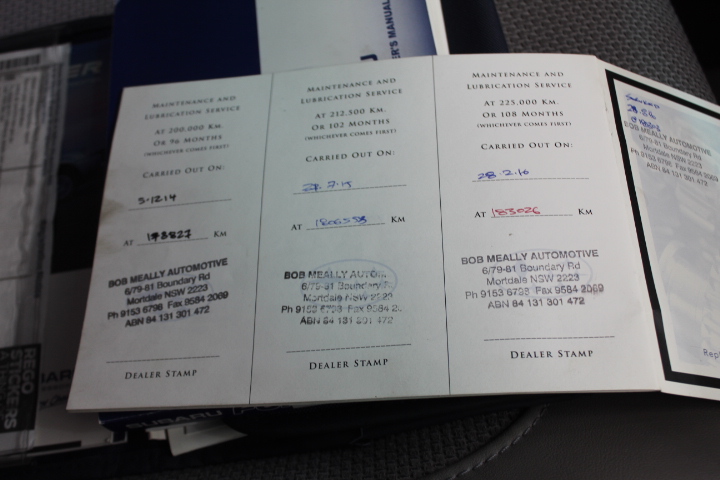 MAINTENANCE AND
LUBRICATION SERVICE
AT 200.000 KM
OR 96 MONTHS
(WHICHEVER COMES FIRST)
CARRIED OUT ON:
5.12.14
AT KM
BOB MEALLY AUTOMOTIVE
6/79-81 Boundary Rd
Mortdale NSW 2223
Ph 9153 6798 Fax 9584 2069
ABN 84 131 301 472
DEALER STAMP
MAINTENANCE AND
LUBRICATION SERVICE
AT 212.500 KM.
OR 102 MONTHS
(WHICHEVER COMES FIRST)
CARRIED OUT ON:
AT KM
BOB MEALLY AUTO
6/79-81 Boundary
Mortdale NSW 2223
Ph 9153 6798 Fax 9584
ABN 84 131 301 472
DEALER STAMP
MAINTENANCE AND
LUBRICATION SERVICE
AT 225.000 KM
OR 108 MONTHS
(WHICHEVER COMES FIRST)
CARRIED OUT ON:
28.2.16
AT 183026 KM
BOB MEALLY AUTOMOTIVE
6/79-81 Boundary Rd
Mortdale NSW 2223
Ph 9153 6798 Fax 9584 2069
ABN 84 131 301 472
DEALER STAMP
BOB MEALLY AUTOMOTIVE
6/79-81 Boundary Rd
Mortdale NSW 2223
Ph 9153 6798 Fax 9584 2069
ABN 84 131 301 472
Rep
ER'S MANUAL
SUBARU
RECO
STICKERS